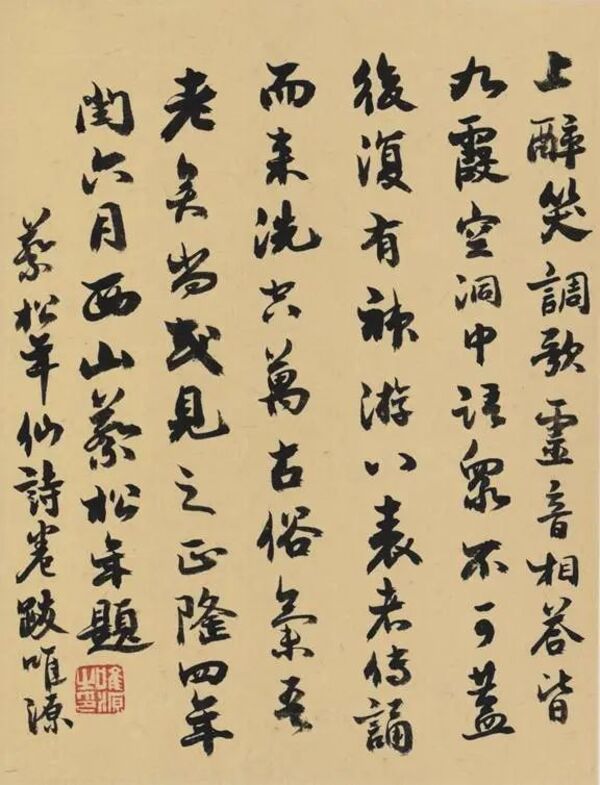 上醉笑調歌靈音相荅皆
九霞空洞中語眾不可蓋
後復有神游八表者傳誦
而来洗空萬古俗氣吾
老矣尚或見之正隆四年
閏六月西山蔡松年題
蔡松年仙詩卷跋唯源
唯源之印